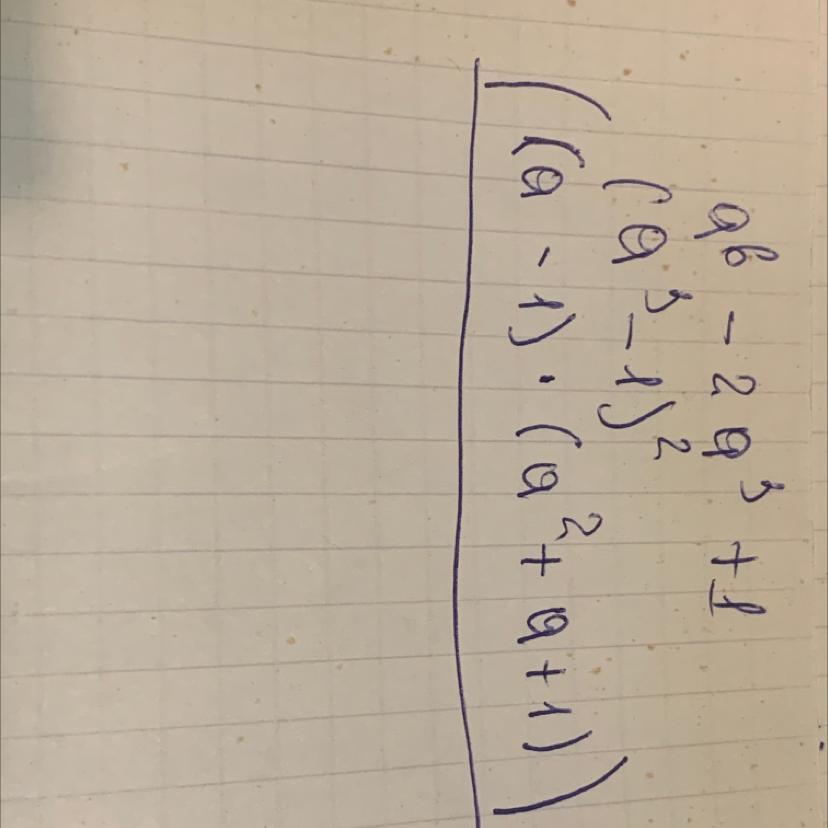 a⁶ - 2a³ + 1
(a³ - 1)²
((a - 1) · (a² + a + 1))